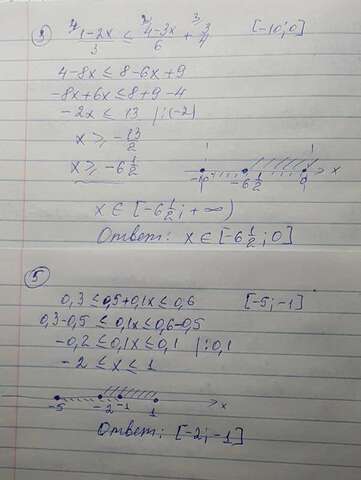 ③ ⁴⁾(1-2x)/3 ≤ ²⁾(4-3x)/6 + ³⁾3/4 [-10; 0]
4-8x ≤ 8-6x+9
-8x+6x ≤ 8+9-4
-2x ≤ 13 |:(-2)
x ≥ -13/2
x ≥ -6 1/2
-10 -6 1/2 0 x
x ∈ [-6 1/2; +∞)
Ответ: x ∈ [-6 1/2; 0]
⑤
0,3 ≤ 0,5+0,1x ≤ 0,6 [-5; -1]
0,3-0,5 ≤ 0,1x ≤ 0,6-0,5
-0,2 ≤ 0,1x ≤ 0,1 |:0,1
-2 ≤ x ≤ 1
-5 -2 -1 1 x
Ответ: [-2; -1]